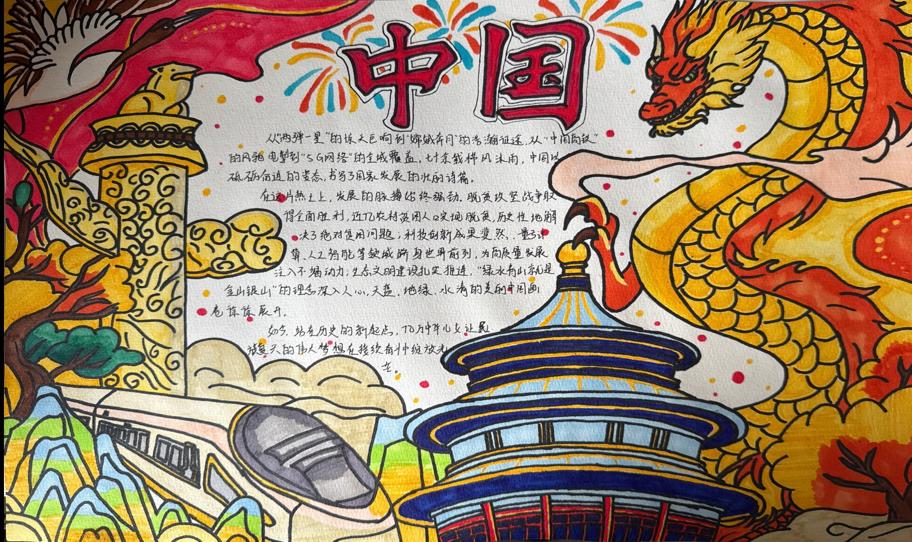 中国
从"两弹一星"的惊天巨响到"嫦娥奔月"的浩瀚征途，从"中国高铁"
的风驰电掣到"5G网络"的全域覆盖，七十余载栉风沐雨，中国以
砥砺奋进的姿态，书写了国家发展的壮丽诗篇。
在这片热土上，发展的脉搏始终强劲。脱贫攻坚战争取
得全面胜利，近1亿农村贫困人口实现脱贫，历史性地解
决了绝对贫困问题；科技创新成果斐然，量子计
算、人工智能等领域跻身世界前列，为高质量发展
注入不竭动力；生态文明建设扎实推进，"绿水青山就是
金山银山"的理念深入人心，天蓝、地绿、水清的美丽中国画
卷徐徐展开。
如今，站在历史的新起点，14亿中华儿女让民
族复兴的伟大梦想在接续奋斗中绽放光
芒。